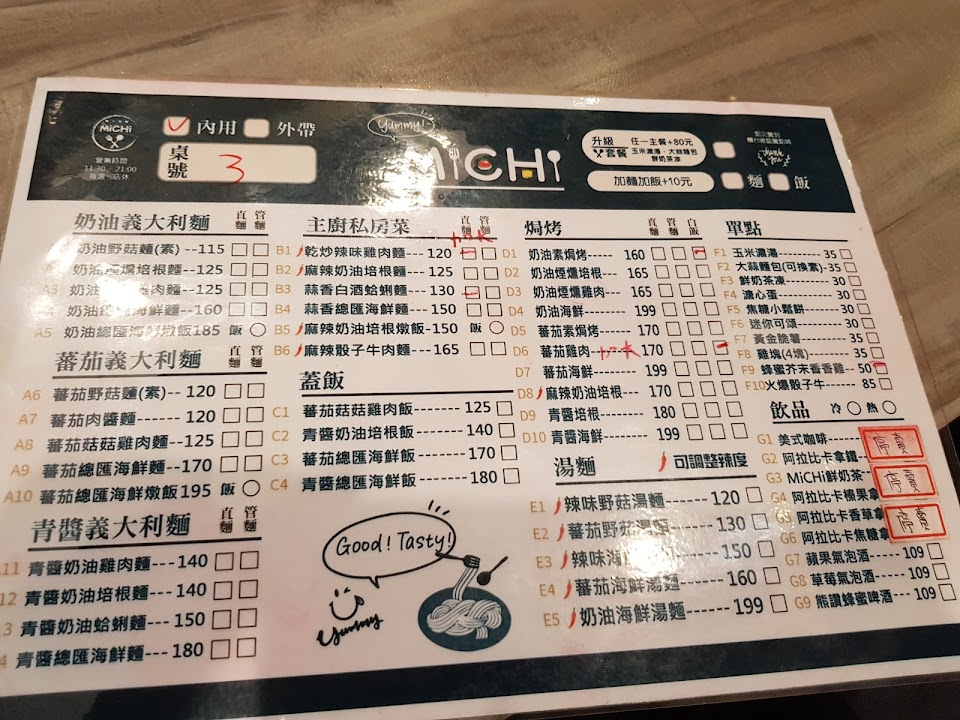 MiCHi
營業時間
11:30 - 21:00
✓ 內用 □ 外帶
桌號 3
Yummy!
MiCHi
升級套餐
任一主餐+80元
玉米濃湯、大蒜麵包
鮮奶茶凍
加麵加飯+10元 □ 麵 □ 飯
thank you
奶油義大利麵 直麵 管麵
奶油野菇麵(素)--115
125
125
160
A5 奶油總匯海鮮燉飯185 飯
蕃茄義大利麵
A6 蕃茄野菇麵(素)-- 120
A7 蕃茄肉醬麵--- 120
A8 蕃茄菇菇雞肉麵--125
A9 蕃茄總匯海鮮麵--170
A10 蕃茄總匯海鮮燉飯195 飯
青醬義大利麵 直麵 管麵
A11 青醬奶油雞肉麵--- 140
12 青醬奶油培根麵--- 140
13 青醬奶油蛤蜊麵--- 150
青醬總匯海鮮麵--- 180
主廚私房菜 直麵 管麵
B1 乾炒辣味雞肉麵--- 120
B2 麻辣奶油培根麵--- 125
B3 蒜香白酒蛤蜊麵--- 130
B4 蒜香奶油海鮮麵--- 150
B5 麻辣奶油培根燉飯-150 飯
B6 麻辣骰子牛肉麵--- 165
蓋飯
C1 蕃茄菇菇雞肉飯------- 125
C2 青醬奶油培根飯------- 140
C3 蕃茄總匯海鮮飯------- 170
C4 青醬總匯海鮮飯------- 180
Good! Tasty!
yummy
焗烤 直麵 管麵 白飯
D1 奶油素焗烤----- 160
D2 奶油煙燻培根--- 165
D3 奶油煙燻雞肉--- 165
D4 奶油海鮮------- 199
D5 蕃茄素焗烤----- 170
D6 蕃茄雞肉 170
D7 蕃茄海鮮------- 199
D8 麻辣奶油培根--- 170
D9 青醬培根------- 180
D10 青醬海鮮------- 199
湯麵 可調整辣度
E1 辣味野菇湯麵------- 120
E2 蕃茄野菇湯麵------- 130
E3 辣味海鮮湯麵------- 150
E4 蕃茄海鮮湯麵------- 160
E5 奶油海鮮湯麵------- 199
單點
F1 玉米濃湯------- 35
F2 大蒜麵包(可換素)-35
F3 鮮奶茶凍------- 30
F4 溏心蛋------- 30
F5 焦糖小鬆餅------- 30
F6 迷你可頌------- 30
F7 黃金脆薯------- 35
F8 雞塊(4塊)------- 35
F9 蜂蜜芥末香香雞-- 50
F10 火爆骰子牛------- 85
飲品 冷 熱
G1 美式咖啡
G2 阿拉比卡拿鐵
G3 MiCHi鮮奶茶
G4 阿拉比卡榛果拿
G5 阿拉比卡香草拿
G6 阿拉比卡焦糖拿
G7 蘋果氣泡酒------- 109
G8 草莓氣泡酒------- 109
G9 熊讚蜂蜜啤酒--- 109